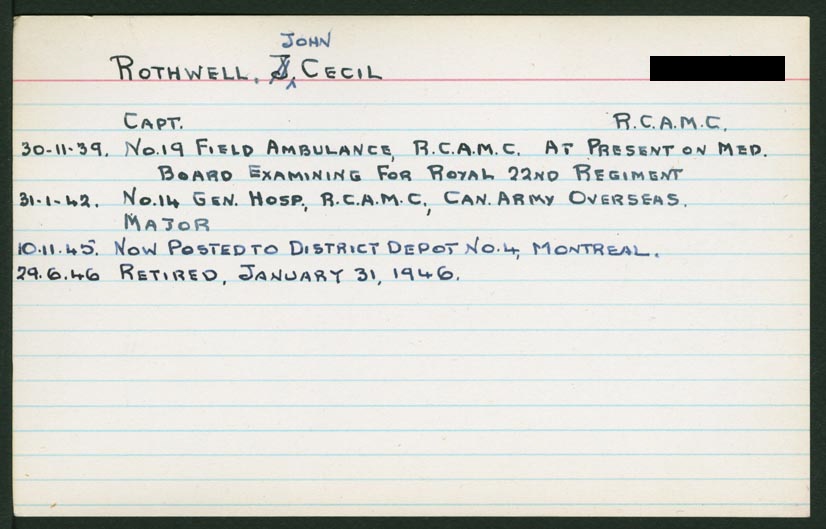 JOHN
ROTHWELL, J. CECIL
CAPT. R.C.A.M.C.
30-11-39. NO.19 FIELD AMBULANCE, R.C.A.M.C. AT PRESENT ON MED.
BOARD EXAMINING FOR ROYAL 22ND REGIMENT
31-1-42. NO.14 GEN. HOSP., R.C.A.M.C., CAN. ARMY OVERSEAS.
MAJOR
10.11.45. NOW POSTED TO DISTRICT DEPOT NO.4, MONTREAL.
29.6.46 RETIRED, JANUARY 31, 1946.